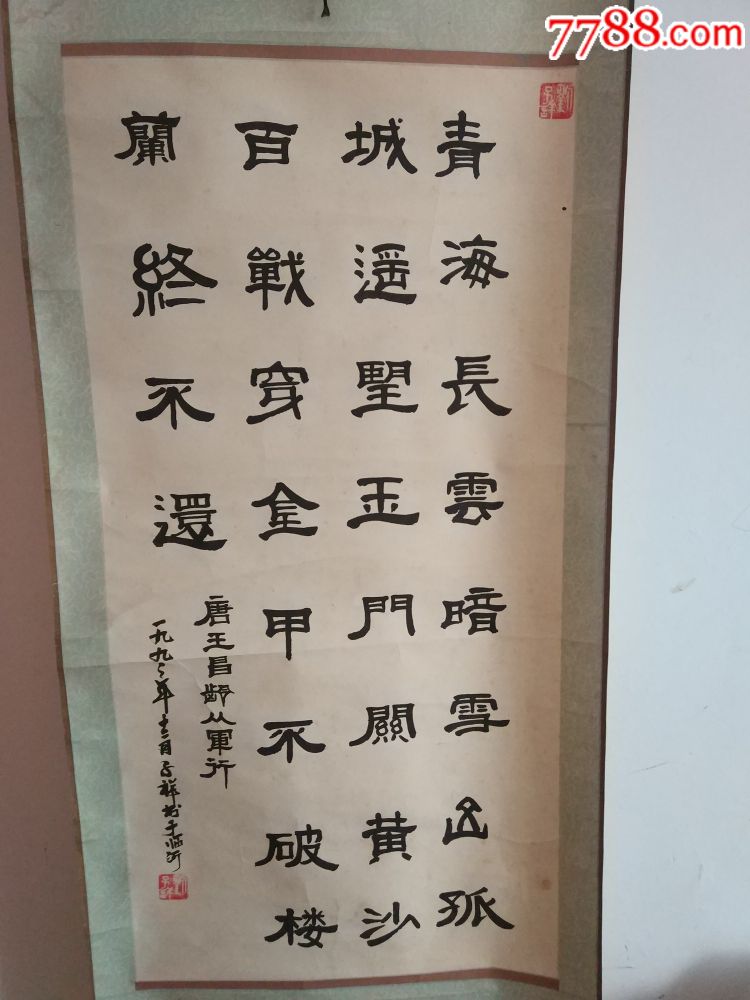 7788.com
青海長雲暗雪山孤
城遥望玉門關黄沙
百戰穿金甲不破楼
蘭終不還
唐王昌齡从軍行
一九九年十二月子祥书于临沂